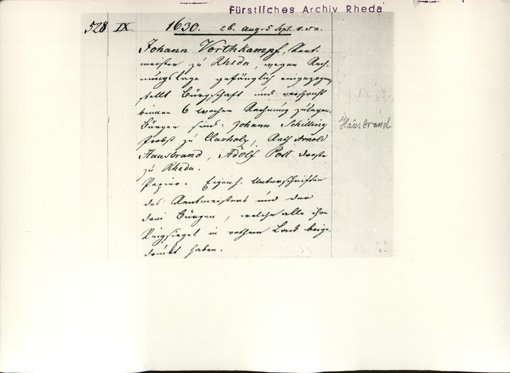 Fürstliches Archiv Rheda
528 IX 1630. 26. Aug. 5 Sept.
Johann Vorthkampf, Rent-
meister zu Rheda, wegen Rech-
nungslage gefänglich eingezogen,
stellt Bürgschaft und verspricht
binnen 6 wochen Rechnung zulegen.
Bürgen sind: Johann Schilling
Probst zu Clarholz, Ralf Arnold
Hausbrand, Adolf Post Droste
zu Rheda.
Hausbrand
Papier. Eigenh. Unterschriften
des Rentmeisters und der
drei Bürgen, welche alle ihre
Ringsiegel in rothem Lack beige-
drückt haben.